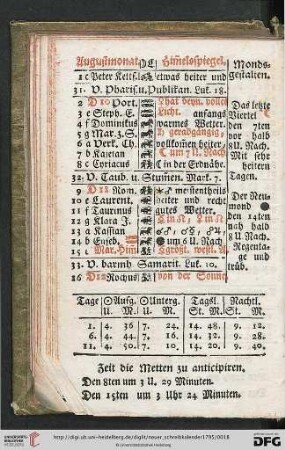 Augustmonat. DC Him̄elsspiegel. Monds-
1 c Peter Kettf. etwas heiter und gestalten.
31. V. Pharis. u. Publikan. Luk. 18.
2 D 10 Port. That deyn. volle
3 e Steph. E. Licht. anfangs Das letzte
4 f Dominikus warmes Wetter. Viertel
5 g Mar. z. S. geradgängig, den 7ten
6 a Verk. Ch. vollkom̄en heiter, vor halb
7 b Kajetan um 7 U. Nach 8 U. Nach.
8 c Cyriacus in der Erdnähe. Mit sehr
32. V. Taub. u. Stum̄en. Mark. 7. heitern Tagen.
9 D 11 Rom. meistentheils
10 e Laurent. heiter und recht Der Neu-
11 f Taurinus gutes Wetter. mond
12 g Klara J. den 14ten
13 a Kassian nah halb
14 b Euseb. um 6 U. Nach 9 U. Nach.
15 c Mar. Him̄ Regentage und
33. V. barmh Samarit. Luk. 10. trüb.
16 D 12 Rochus von der Sonne
Tage Aufg. Unterg. Tagsl. Nachtl.
U. M. U. M. St. M. St. M.
1. 4. 36 7. 24. 14. 48. 9. 12.
6. 4. 44 7. 16. 14. 32. 9. 28.
11. 4. 50. 7. 10. 14. 20. 9. 40.
Zeit die Metten zu anticipiren.
Den 8ten um 3 U. 29 Minuten.
Den 15ten um 3 Uhr 24 Minuten.
http://digi.ub.uni-heidelberg.de/diglit/neuer_schreibkalender1795/0018
© Universitätsbibliothek Heidelberg
UNIVERSITÄTS-BIBLIOTHEK HEIDELBERG
gefördert durch die DFG